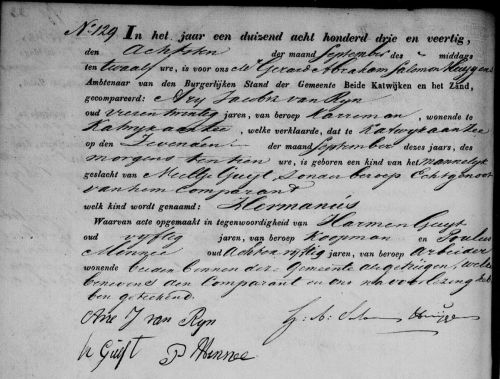 No. 129 In het jaar een duizend acht honderd drie en veertig,
den Achtsten der maand September des middags
ten twaalf ure, is voor ons Mr. Gerard Abraham Salomon
Ambtenaar van den Burgerlijken Stand der Gemeente Beide Katwijken en het Zand,
gecompareerd: Arij Jacobs van Ryn
oud vierentwintig jaren, van beroep Karreman, wonende te
Katwyk aan Zee, welke verklaarde, dat te Katwyk aan Zee
op den Zevenden der maand September dezes jaars, des
morgens ten tien ure, is geboren een kind van het mannelyk
geslacht van Guijt Zonder beroep Echtgenoot
van hem Comparant
welk kind wordt genaamd: Hermanus
Waarvan acte opgemaakt in tegenwoordigheid van Harmen Guyt
oud vyftig jaren, van beroep Koopman en
oud Achtenvyftig jaren, van beroep Arbeider
wonende beiden binnen deze Gemeente als getuigen, welke
benevens den Comparant en ons na voorlezing heb
ben getekend.
Arie J van Ryn
h Guijt P